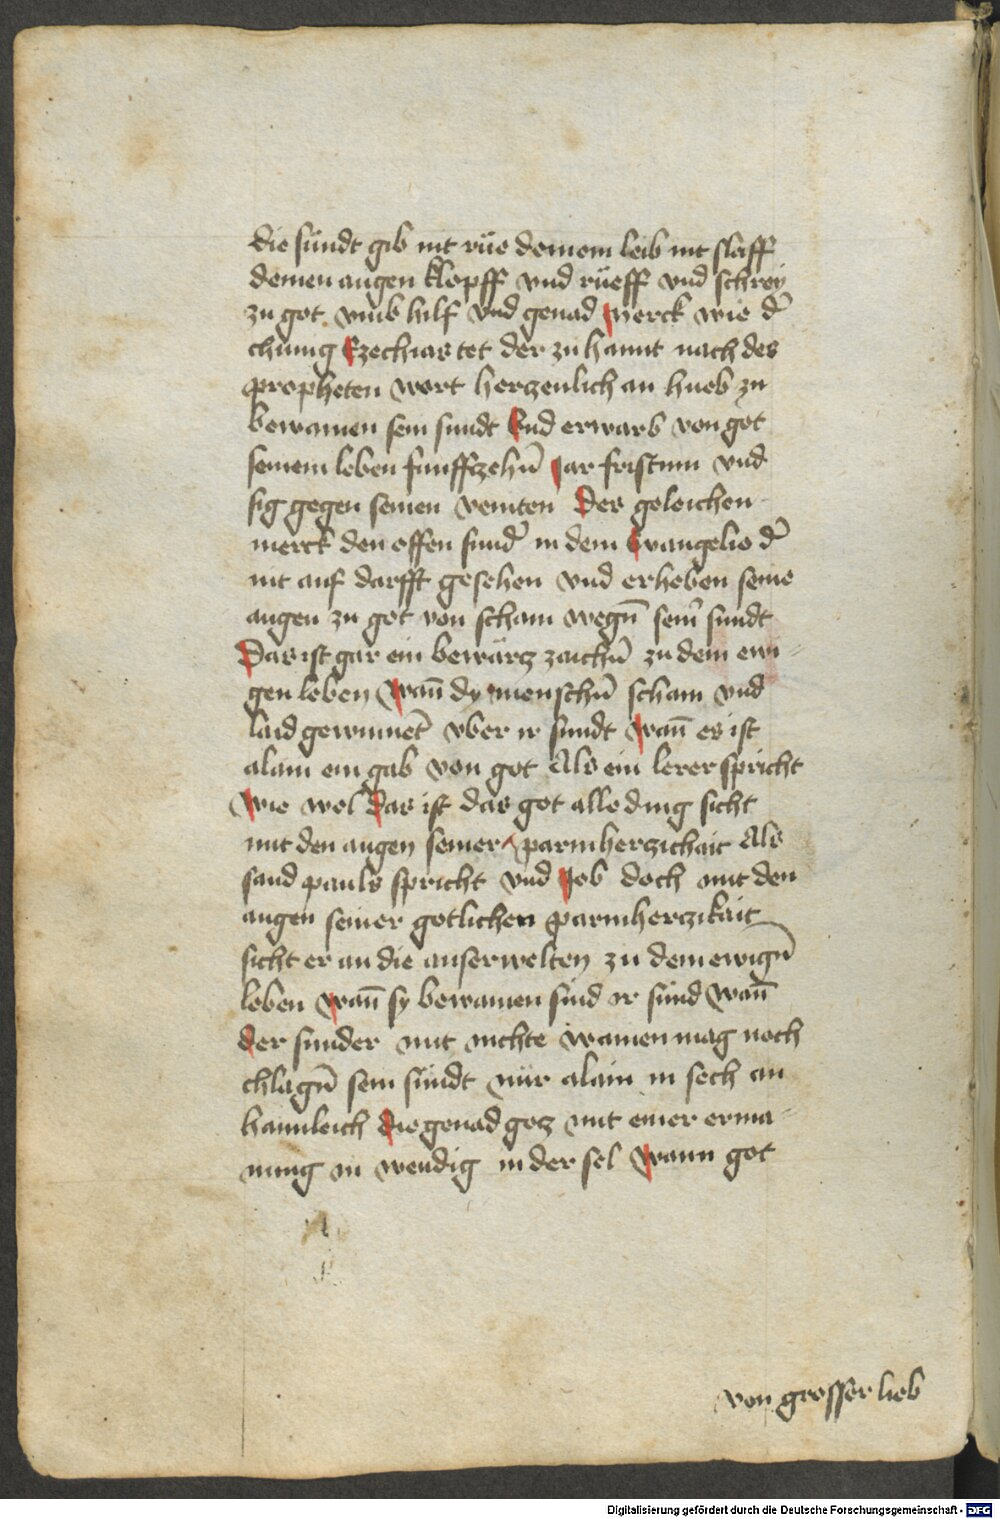 die sündt gib nit rüe deinem leib nit slaff
deinen augen klopff vnd rüeff vnd schrey
zu got vmb hilf vnd genad Merck wie d̄
chünig Ezechias tet der zu hannt nach des
propheten wort herczenlich an hueb zu
bewainen sein sundt Vnd erwarb von got
seinem leben funffzehn̄ Jar fristum vnd
sig gegen seinen veinten Des geleichen
merck den offen sund̄ in dem Ewangelio d̄
nit auf darfft gesehen vnd erheben seine
augen zu got von scham wegn̄ sein̄ sundt
Das ist gar ein bewärtz zaichn̄ zu dem ewi-
gen leben Wan̄ dy menschn̄ scham vnd
laid gewinnet̄ vber ir sundt Wan̄ es ist
alain ein gab von got Als ein lerer spricht
Wie wol das ist das got alle ding sicht
mit den augen seiner parmherzichait Als
sand pauls spricht vnd Job doch mit den
augen seiner gotlichen parmherczikait
sicht er an die auserwelten zu dem ewign̄
leben Wan̄ sy bewainen sind ir sünd Wan̄
der sunder mit nichte wainen mag noch
chlagn̄ sein sündt nür alain in sech an
hannleich die genad gotz mit einer erma-
nung in wendig in der sel Wann got
von grosser lieb
Digitalisierung gefördert durch die Deutsche Forschungsgemeinschaft - DFG